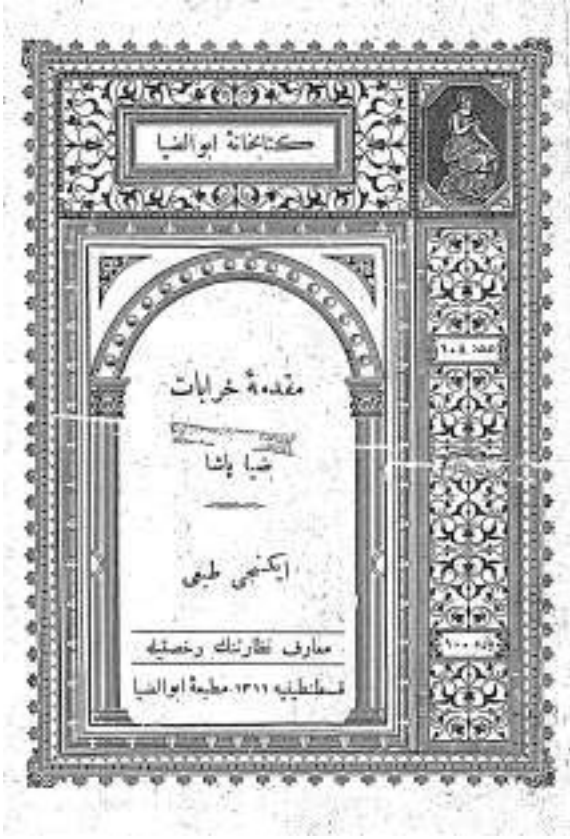 كتابخانهٔ ابوالضيا
مقدمهٔ خرابات
ضيا پاشا
ايكنجى طبعى
معارف نظارتنك رخصتيله
قسطنطينيه ١٣١١ مطبعهٔ ابوالضيا